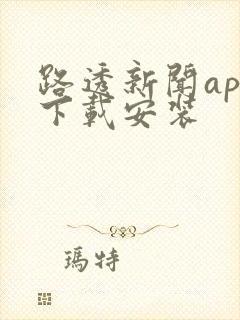 路透新聞ap
下載安裝
瑪特